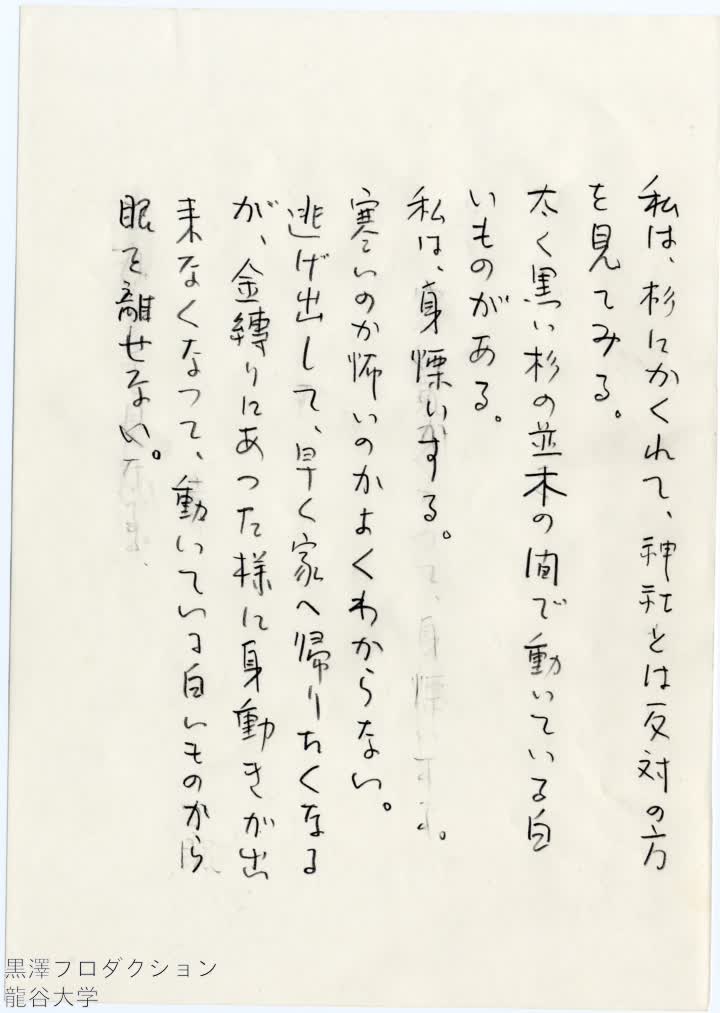 私は、杉にかくれて、神社とは反対の方
を見てみる。
太く黒い杉の並木の間で動いている白
いものがある。
私は、身慄いする。
寒いのか怖いのかよくわからない。
逃げ出して、早く家へ帰りたくなる
が、金縛りにあった様に身動きが出
来なくなって、動いている白いものから
眼を離せない。
黒澤プロダクション
龍谷大学